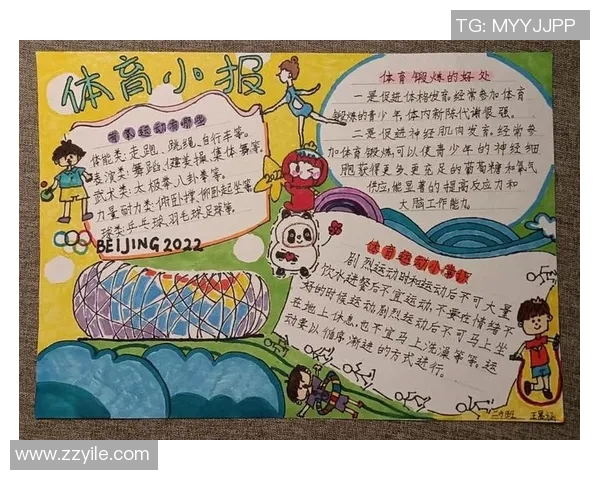 TG: MYYJJPP
体育小报
常见运动有哪些
体能类:走跑、跳绳、自行车等。
表演类:舞蹈、健美操、集体舞等。
武术类:太极拳、八卦拳等。
力量耐力类:俯卧撑、仰卧起坐等
球类:乒乓球、羽毛球、足球等。
BEIJING 2022
体育锻炼的好处
一是促进体格发育。经常参加体育
锻炼的青少年,体内新陈代谢很强。
二是促进神经肌肉发育。经常参
加体育锻炼,可以使青少年的神经细
胞获得更多、更充足的葡萄糖和氧气
供应,能显著的提高反应力和
大脑工作能力。
体育运动小常识
剧烈运动时和运动后不可大量
饮水进餐后不宜运动,不要在情绪不
好的时候运动,剧烈运动后不可马上坐
在地上休息,也不宜马上洗澡等等,运
动要以循序渐进的方式进行。
www.zzyile.com